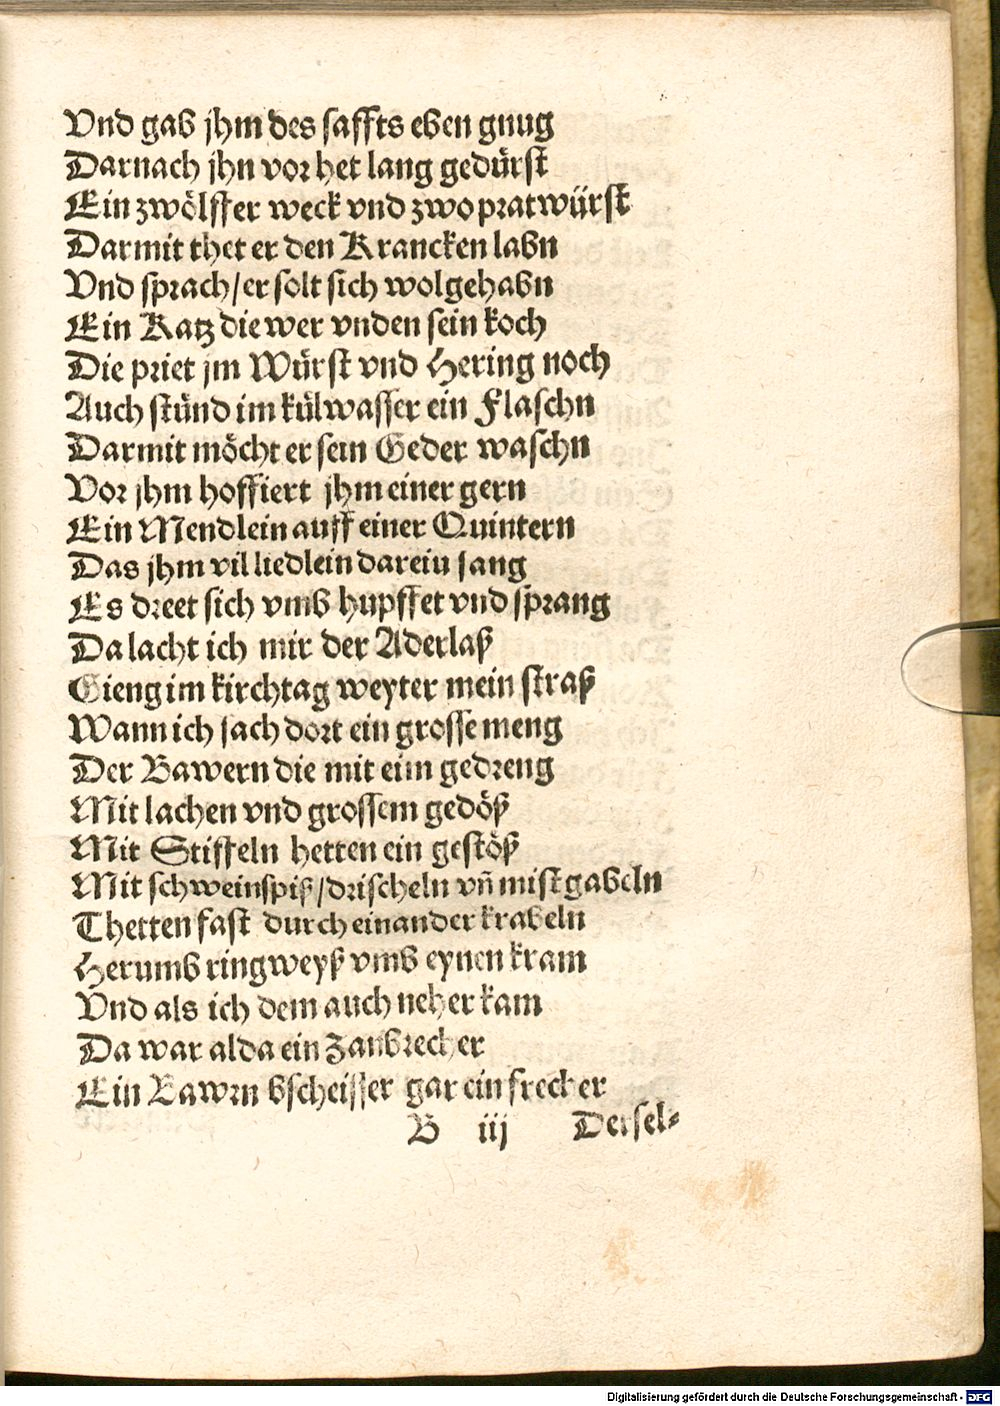 Vnd gab jhm des saffts eben gnug
Darnach jhn vor het lang gedürst
Ein zwölffer weck vnd zwo pratwürst
Darmit thet er den Krancken labn
Vnd sprach/er solt sich wolgehabn
Ein Katz die wer vnden sein koch
Die priet jm Würst vnd Hering noch
Auch stünd im külwasser ein Flaschn
Darmit möcht er sein Geder waschn
Vor jhm hoffiert jhm einer gern
Ein Mendlein auff einer Quintern
Das jhm vil liedlein darein sang
Es dreet sich vmb hupffet vnd sprang
Da lacht ich mir der Aderlaß
Gieng im kirchtag weyter mein straß
Wann ich sach dort ein grosse meng
Der Bawern die mit eim gedreng
Mit lachen vnd grossem gedöß
Mit Stiffeln hetten ein gestöß
Mit schweinspiß/drischeln vñ mistgabeln
Thetten fast durch einander krabeln
Herumb ringweyß vmb eynen kram
Vnd als ich dem auch neher kam
Da war alda ein Zanbrecher
Ein Bawrn bscheisser gar ein frecher
B iij Dersel-
Digitalisierung gefördert durch die Deutsche Forschungsgemeinschaft - DFG